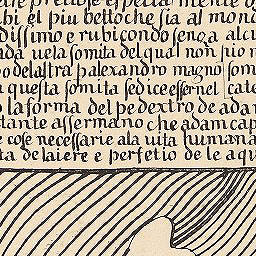 bi el piu bettoche sia al mond
dissimo e rubicondo senza alcu
ada vela somita del qual non pio n
o dela stra p alexandro magno som
questa somita sedice esser nel cate
la forma del pe dextro de adar
tante affermano che adam cap
e cose necessarie ala vita humana
ta de laiere e perfetio de le aqu